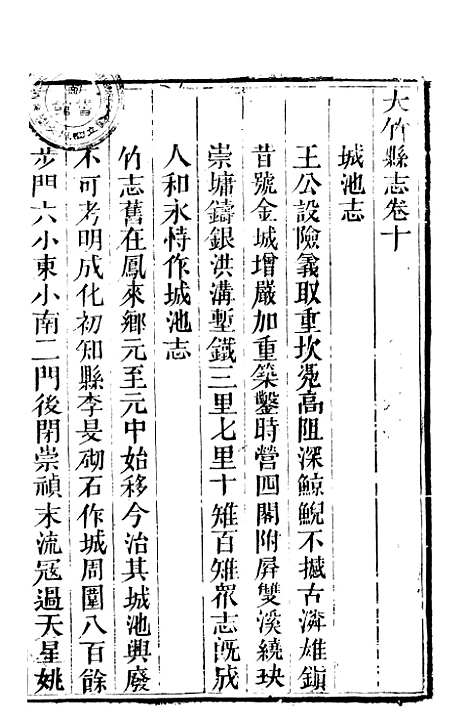 大竹縣志卷十
城池志
王公設險義取重坎嵬高阻深鯨鯢不撼古濱雄鎮
昔號金城增嚴加重築鑿時營四閣附屏雙溪繞玦
崇墉鑄銀洪溝塹鐵三里七里十雉百雉眾志旣成
人和永恃作城池志
竹志舊在鳳來鄉元至元中始移今治其城池興廢
不可考明成化初知縣李旻砌石作城周圍八百餘
步門六小東小南二門後閉崇禎末流寇過天星姚